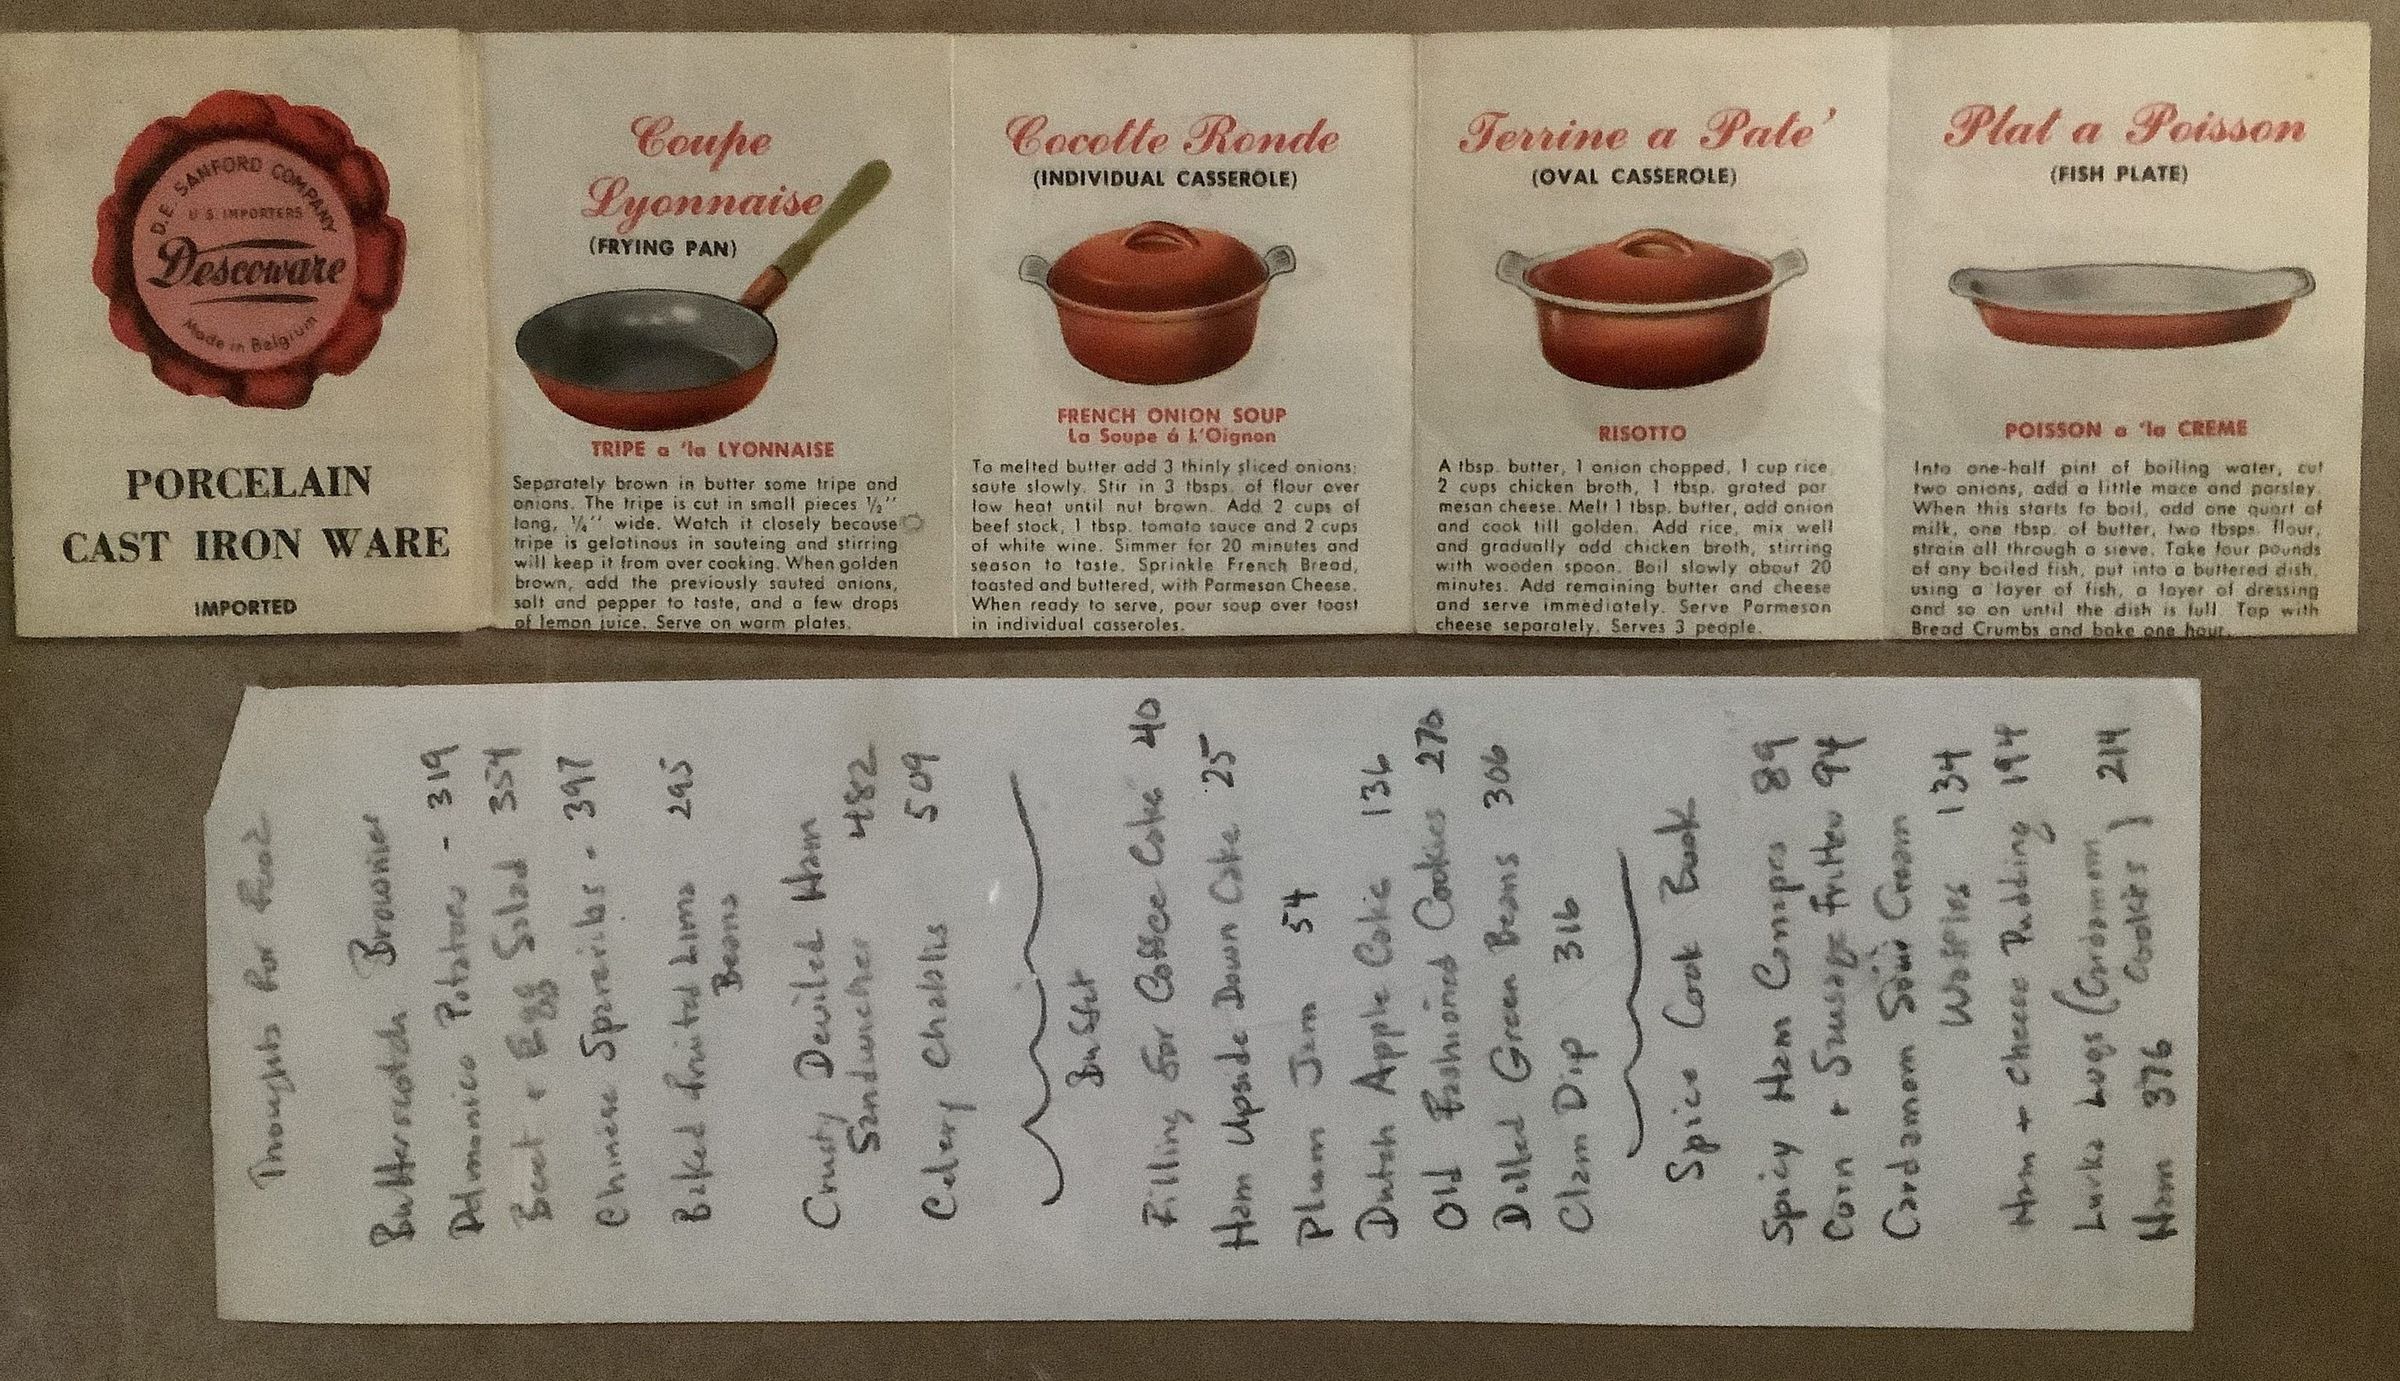 D.E. SANFORD COMPANY
U.S. IMPORTERS
Descoware
Made in Belgium
PORCELAIN
CAST IRON WARE
IMPORTED
Coupe
Lyonnaise
(FRYING PAN)
TRIPE a 'la LYONNAISE
Separately brown in butter some tripe and
onions. The tripe is cut in small pieces ½''
long, ¼'' wide. Watch it closely because
tripe is gelatinous in sauteing and stirring
will keep it from over cooking. When golden
brown, add the previously sauted onions,
salt and pepper to taste, and a few drops
of lemon juice. Serve on warm plates.
Cocotte Ronde
(INDIVIDUAL CASSEROLE)
FRENCH ONION SOUP
La Soupe á L'Oignon
To melted butter add 3 thinly sliced onions;
saute slowly. Stir in 3 tbsps. of flour over
low heat until nut brown. Add 2 cups of
beef stock, 1 tbsp. tomato sauce and 2 cups
of white wine. Simmer for 20 minutes and
season to taste. Sprinkle French Bread,
toasted and buttered, with Parmesan Cheese.
When ready to serve, pour soup over toast
in individual casseroles.
Terrine a Pate'
(OVAL CASSEROLE)
RISOTTO
A tbsp. butter, 1 onion chopped, 1 cup rice
2 cups chicken broth, 1 tbsp. grated par
mesan cheese. Melt 1 tbsp. butter, add onion
and cook till golden. Add rice, mix well
and gradually add chicken broth, stirring
with wooden spoon. Boil slowly about 20
minutes. Add remaining butter and cheese
and serve immediately. Serve Parmeson
cheese separately. Serves 3 people.
Plat a Poisson
(FISH PLATE)
POISSON a 'la CREME
Into one-half pint of boiling water, cut
two onions, add a little mace and parsley.
When this starts to boil, add one quart of
milk, one tbsp. of butter, two tbsps. flour,
strain all through a sieve. Take four pounds
of any boiled fish, put into a buttered dish,
using a layer of fish, a layer of dressing
and so on until the dish is full. Top with
Bread Crumbs and bake one hour.
Thoughts for food
Butterscotch Brownies
Delmonico Potatoes - 319
Beet + Egg Salad 354
Chinese Spareribs - 397
Baked Fruited Lima 295
Beans
Crusty Deviled Ham
Sandwiches 482
Celery Chablis 509
Buffet
Filling for Coffee Cake 40
Ham Upside Down Cake 25
Plum Jam 54
Dutch Apple Cake 136
Old Fashioned Cookies 270
Dilled Green Beans 306
Clam Dip 316
Spice Cook Book
Spicy Ham Canapes 89
Corn + Sausage Fritters 94
Cardamom Sour Cream
Waffles 134
Ham + Cheese Pudding 194
Luvka Lugs (Cardamom
Cookies) 214
Ham 376